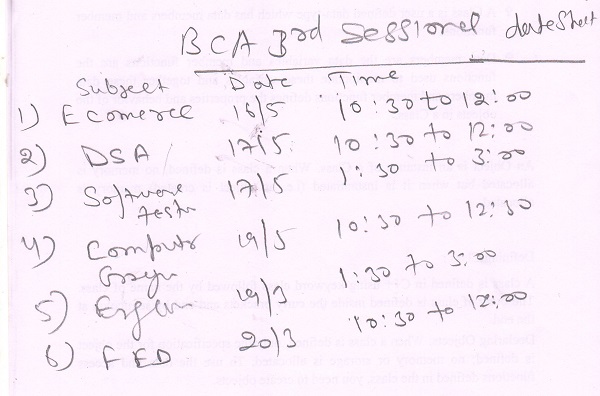 BCA 3rd Sessional dateSheet
Subject Date Time
1) Ecomerce 16/5 10:30 to 12:00
2) DSA 17/5 10:30 to 12:00
3) Software 17/5 1:30 to 3:00
4) Computer 19/5 10:30 to 12:30
5) 19/3 1:30 to 3:00
6) FED 20/3 10:30 to 12:00